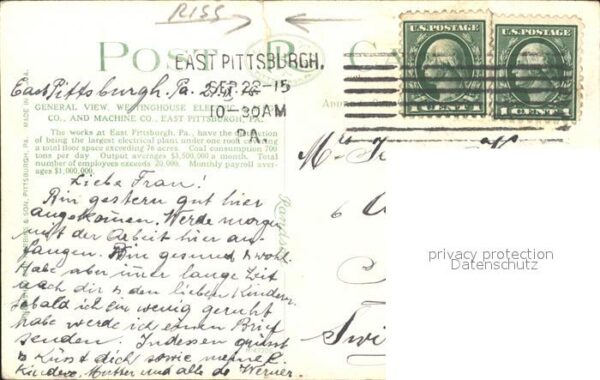 RISS
POST CA
EAST PITTSBURGH,
SEP 22-15
10-30AM
PA.
U.S. POSTAGE U.S. POSTAGE
1 CENT 1
East Pittsburgh. Pa.
GENERAL VIEW, WESTINGHOUSE ELECTRIC
CO., AND MACHINE CO., EAST PITTSBURGH, PA.
The works at East Pittsburgh, Pa., have the distinction
of being the largest electrical plant under one roof covering
a total floor space exceeding 76 acres. Coal consumption 700
tons per day. Output averages $3,500,000 a month. Total
number of employees exceeds 20,000. Monthly payroll aver-
ages $1,000,000.
& SON, PITTSBURGH, PA. MADE IN
Liebe Frau!
Bin gestern gut hier
angekommen. Werde morgen
mit der Arbeit hier an-
fangen. Bin gesund & wohl
Habe aber immer lange Zeit
nach dir & den lieben Kindern.
Sobald ich ein wenig geruht
habe werde ich einen Brief
senden. Indessen grüsst
& Küsst dich sowie meine l.
Kinder, Mutter und alle Werner.
Mrs
6
Swi
privacy protection
Datenschutz